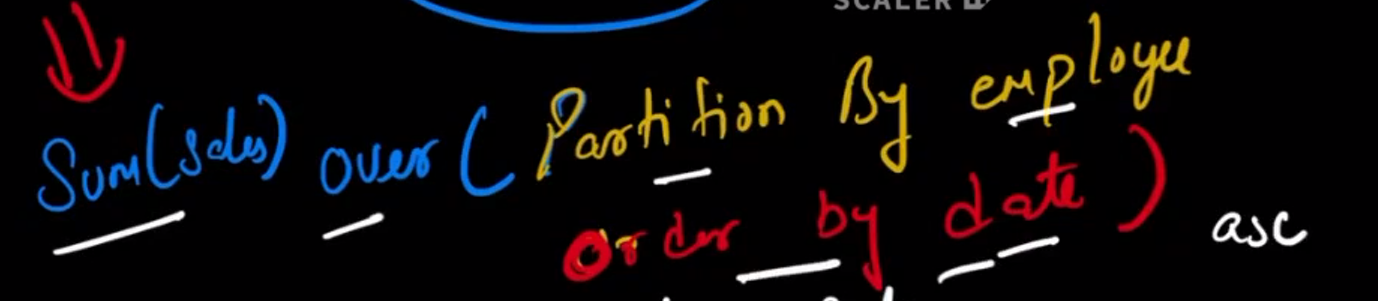 SCALER
Sum(sales) over ( Partition By employee
Order by date ) asc